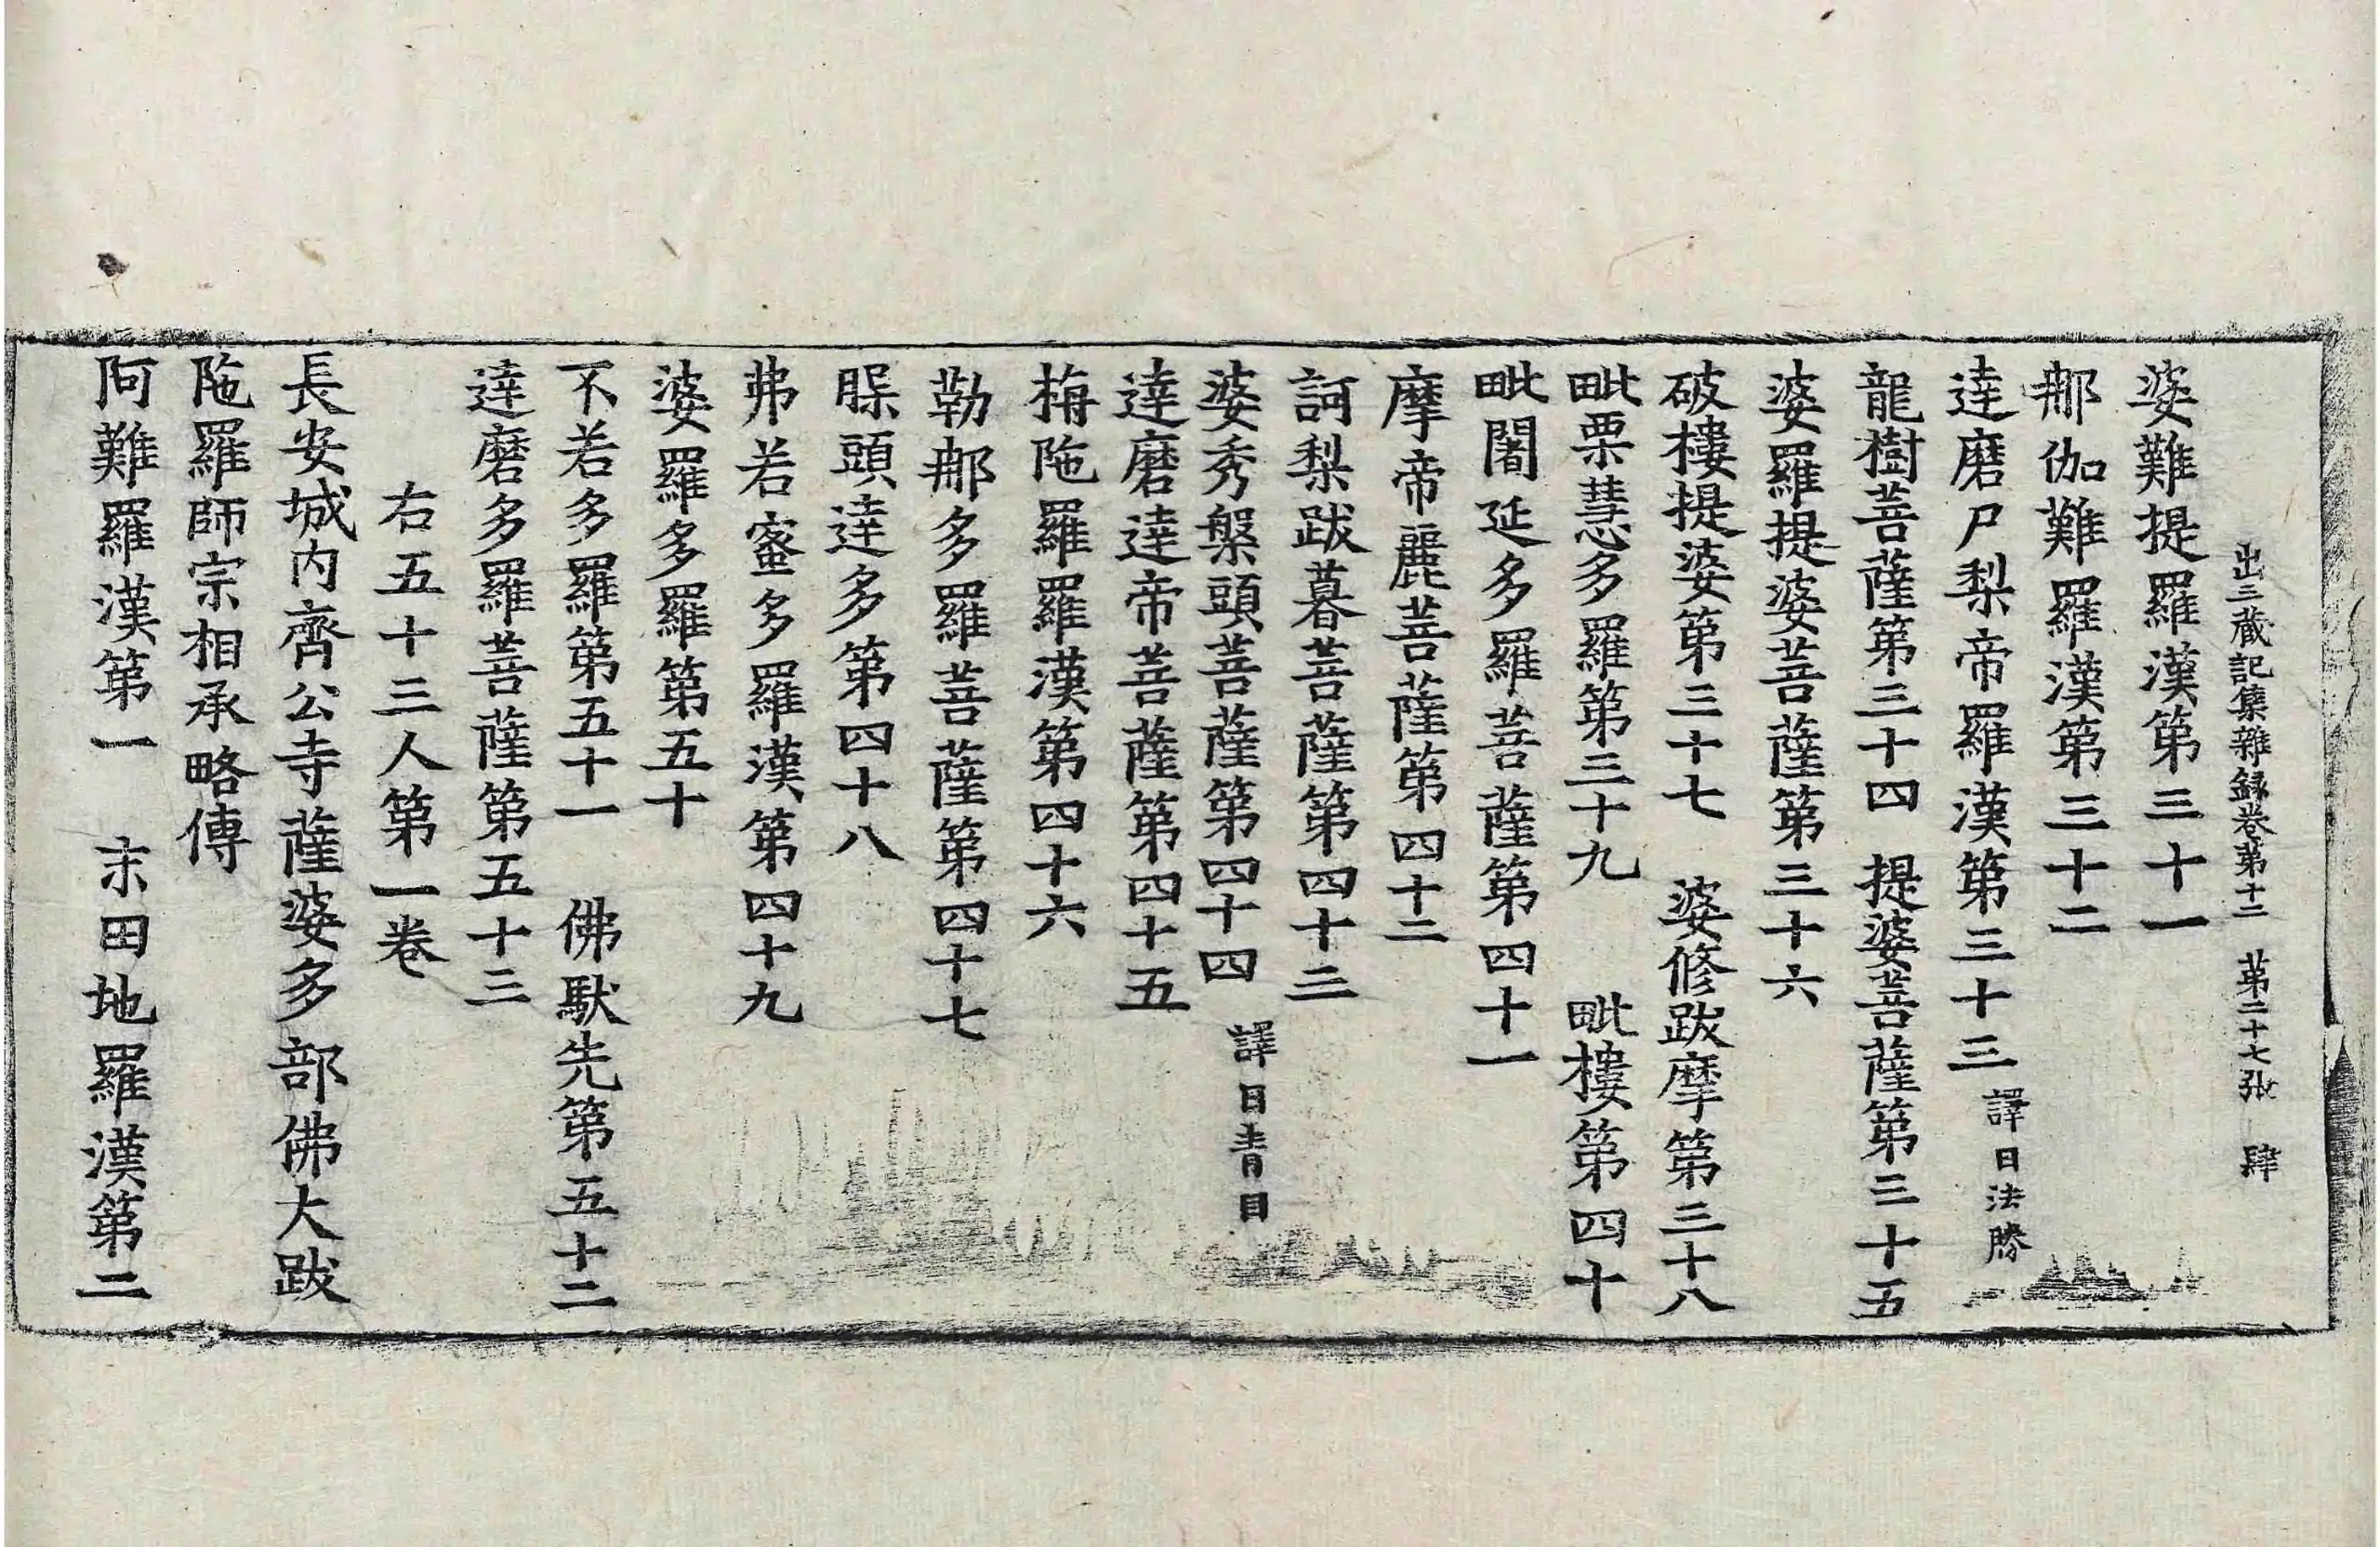 出三藏記集雜録卷第十二 第二十七張 肆
婆難提羅漢第三十一
那伽難羅漢第三十二
達磨尸梨帝羅漢第三十三 譯曰法勝
龍樹菩薩第三十四 提婆菩薩第三十五
婆羅提婆菩薩第三十六
破樓提婆第三十七 婆修跋摩第三十八
毗栗慧多羅第三十九 毗樓第四十
毗闍延多羅菩薩第四十一
摩帝麗菩薩第四十二
訶梨跋暮菩薩第四十三
婆秀槃頭菩薩第四十四 譯曰青目
達磨達帝菩薩第四十五
栴陁羅羅漢第四十六
勒那多羅菩薩第四十七
頭達多第四十八
弗若蜜多羅漢第四十九
婆羅多羅第五十
不若多羅第五十一 佛馱先第五十二
達磨多羅菩薩第五十三
右五十三人第一卷
長安城内齊公寺薩婆多部佛大跋
陁羅師宗相承略傳
阿難羅漢第一 末田地羅漢第二